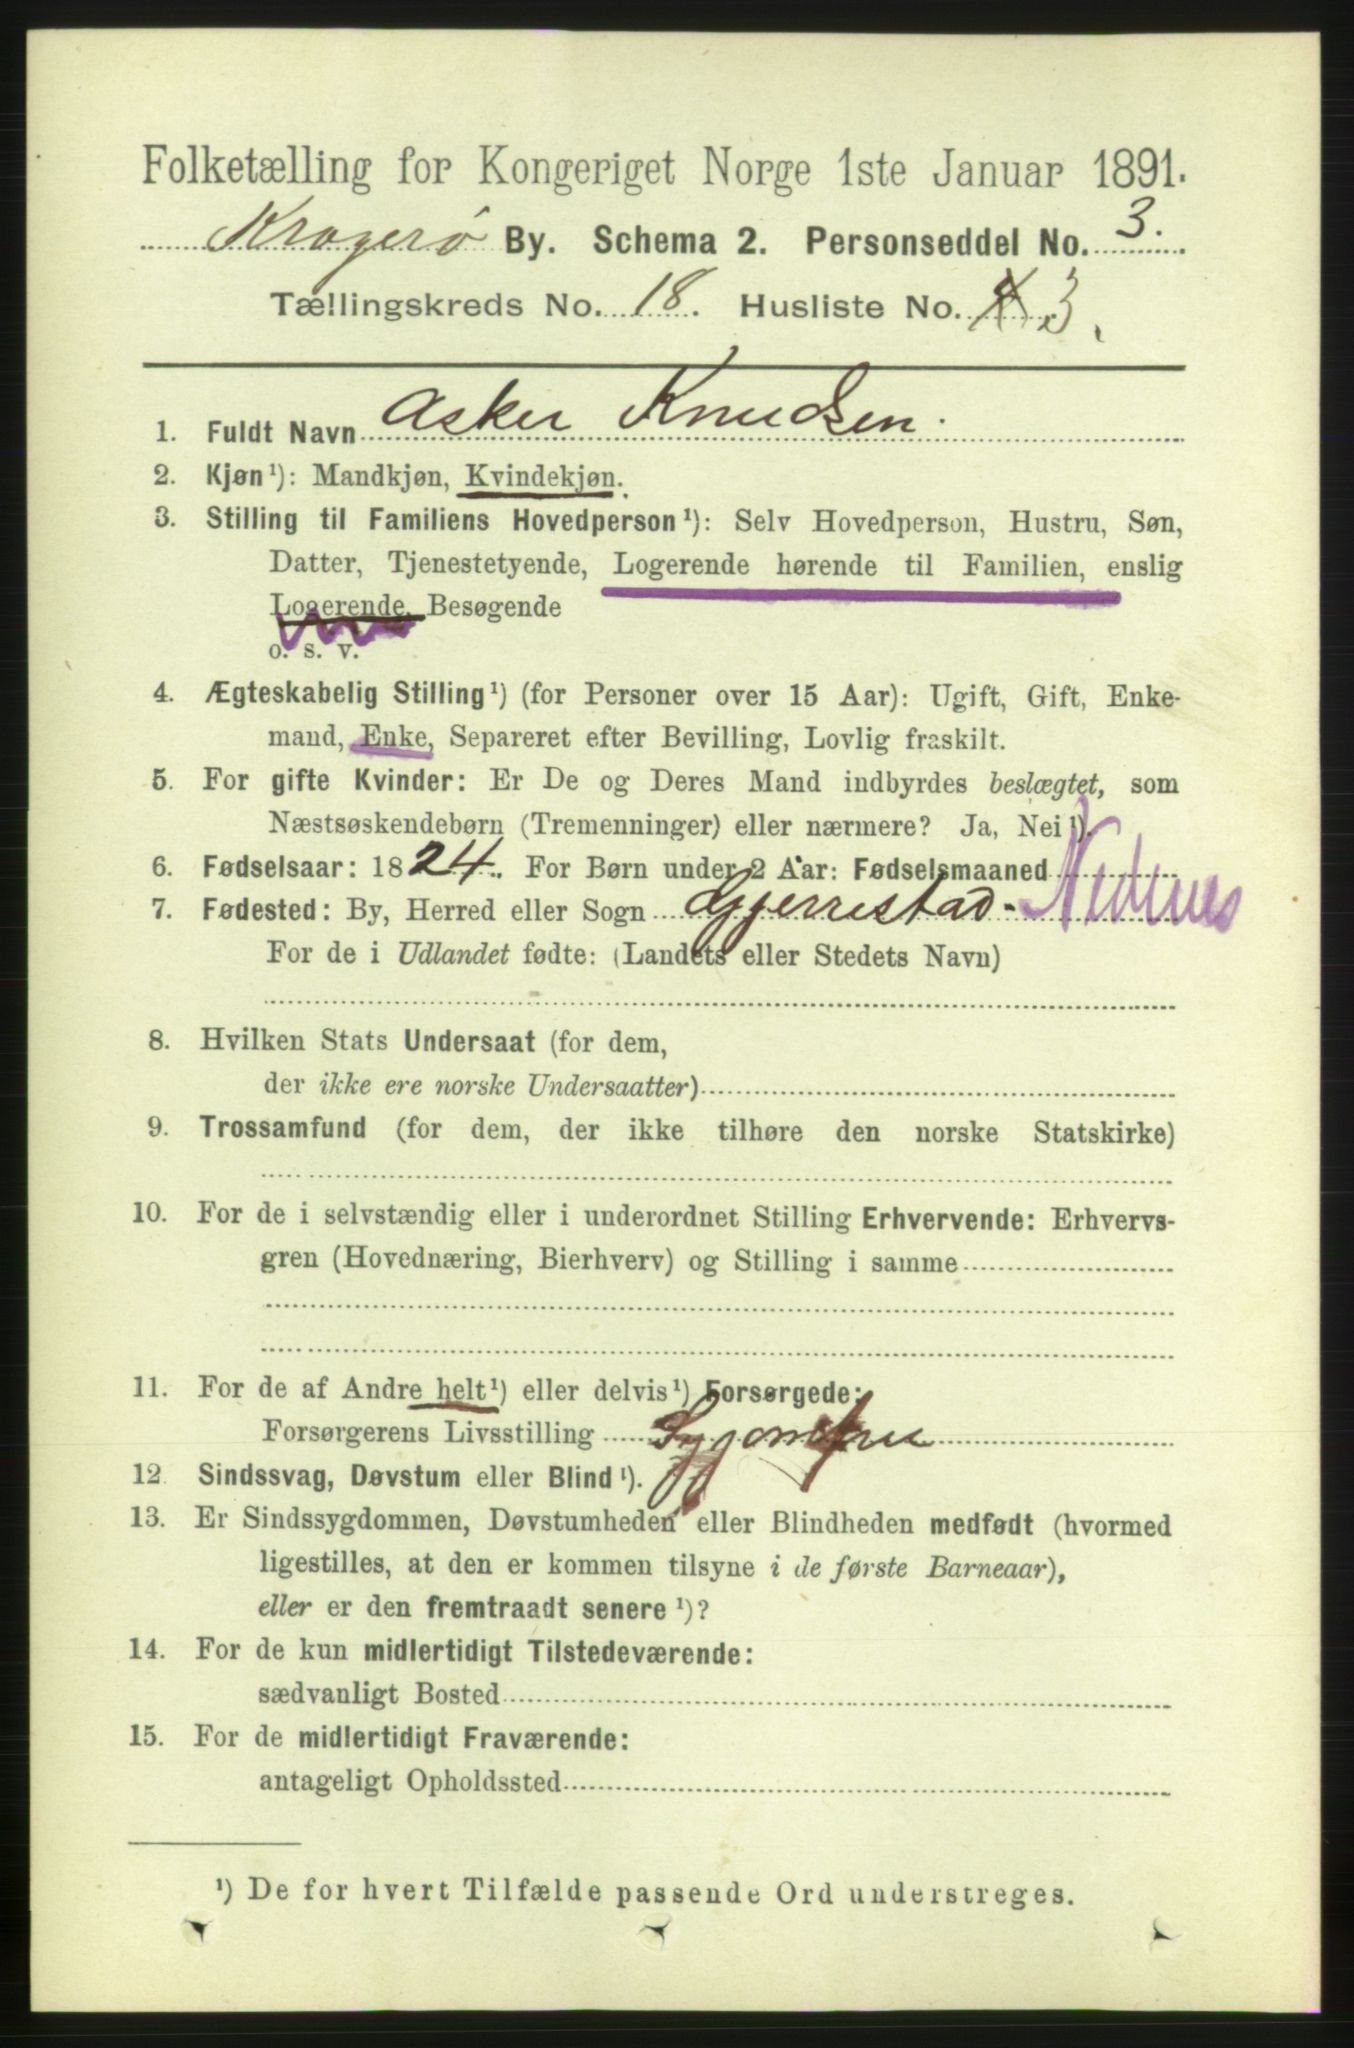 Folketælling for Kongeriget Norge 1ste Januar 1891.
Kragerø By. Schema 2. Personseddel No. 3.
Tællingskreds No. 18. Husliste No. 4 3.
1. Fuldt Navn Asker Knudsen.
2. Kjøn¹): Mandkjøn, Kvindekjøn.
3. Stilling til Familiens Hovedperson¹): Selv Hovedperson, Hustru, Søn,
Datter, Tjenestetyende, Logerende hørende til Familien, enslig
Logerende, Besøgende
o. s. v.
4. Ægteskabelig Stilling¹) (for Personer over 15 Aar): Ugift, Gift, Enke-
mand, Enke, Separeret efter Bevilling, Lovlig fraskilt.
5. For gifte Kvinder: Er De og Deres Mand indbyrdes beslægtet, som
Næstsøskendebørn (Tremenninger) eller nærmere? Ja, Nei¹).
6. Fødselsaar: 1824. For Børn under 2 Aar: Fødselsmaaned
7. Fødested: By, Herred eller Sogn Gjerrestad - Nedenes
For de i Udlandet fødte: (Landets eller Stedets Navn)
8. Hvilken Stats Undersaat (for dem,
der ikke ere norske Undersaatter)
9. Trossamfund (for dem, der ikke tilhøre den norske Statskirke)
10. For de i selvstændig eller i underordnet Stilling Erhvervende: Erhvervs-
gren (Hovednæring, Bierhverv) og Stilling i samme
11. For de af Andre helt¹) eller delvis¹) Forsørgede:
Forsørgerens Livsstilling
12. Sindssvag, Døvstum eller Blind¹).
13. Er Sindssygdommen, Døvstumheden eller Blindheden medfødt (hvormed
ligestilles, at den er kommen tilsyne i de første Barneaar),
eller er den fremtraadt senere¹)?
14. For de kun midlertidigt Tilstedeværende:
sædvanligt Bosted
15. For de midlertidigt Fraværende:
antageligt Opholdssted
¹) De for hvert Tilfælde passende Ord understreges.